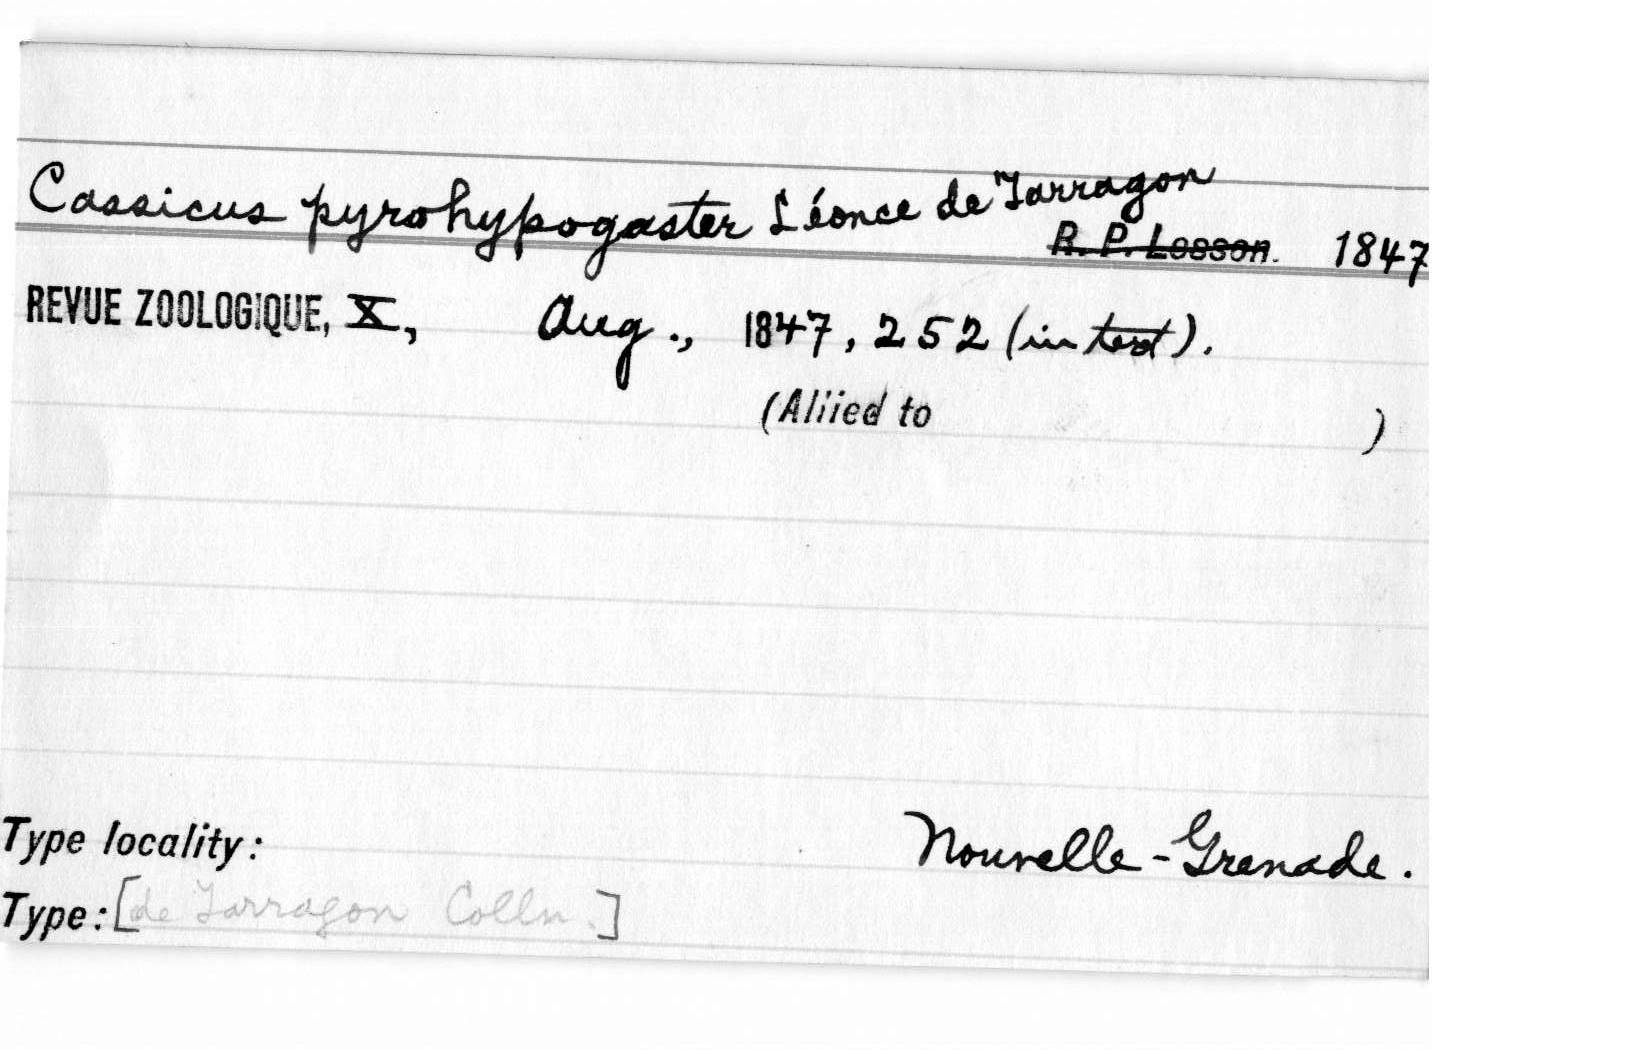 Cassicus pyrohypogaster Léonce de Tarragon
R. P. Lesson. 1847
REVUE ZOOLOGIQUE, X, Aug., 1847, 252 (in text).
(Allied to )
Type locality: Nouvelle-Grenade.
Type: [de Tarragon Colln.]